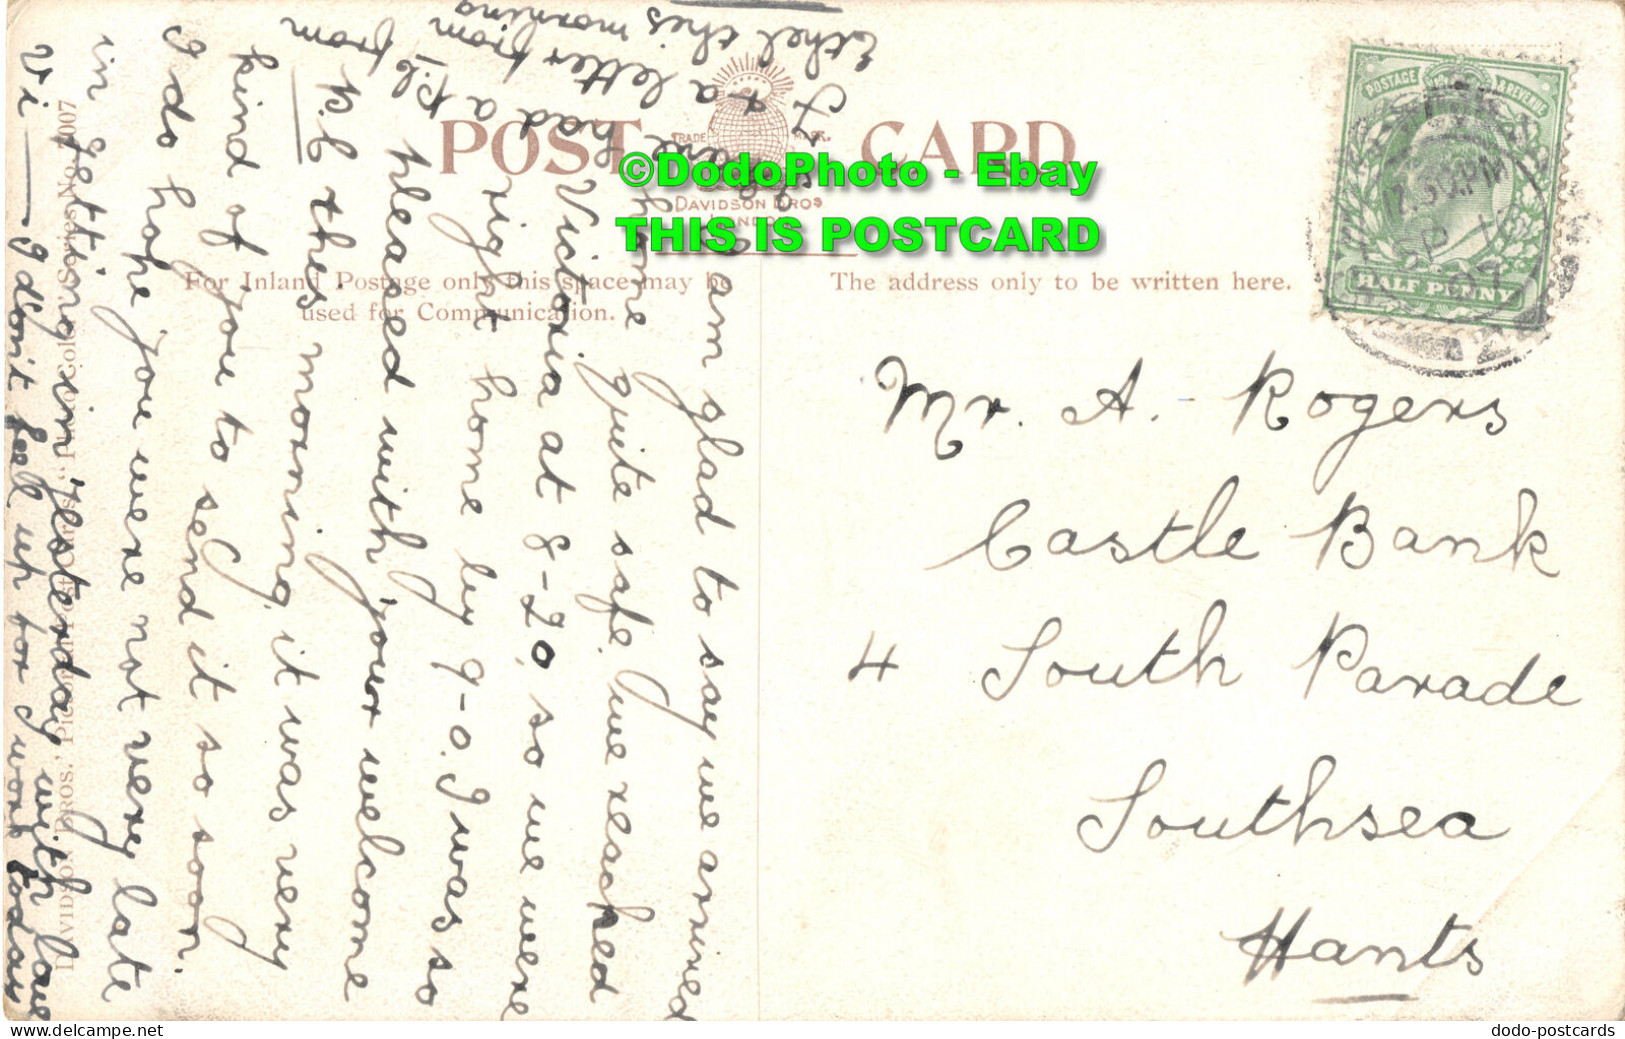 POST CARD
TRADE MARK.
DAVIDSON BROS
LONDON
For Inland Postage only this space may be
used for Communication.
The address only to be written here.
POSTAGE & REVENUE
HALF PENNY
Mr. A. Rogers
Castle Bank
4 South Parade
Southsea
Hants
I am glad to say we arrived
home quite safe. we reached
Victoria at 8-20, so we were
right home by 9-0. I was so
pleased with your welcome
p.c this morning, it was very
kind of you to send it so soon.
I do hope you were not very late
in getting in yesterday with love
Vi — I don't feel up for work today
had a p.c from
& a letter from
Ethel this morning
©DodoPhoto - Ebay
THIS IS POSTCARD
delcampe.net
dodo-postcards